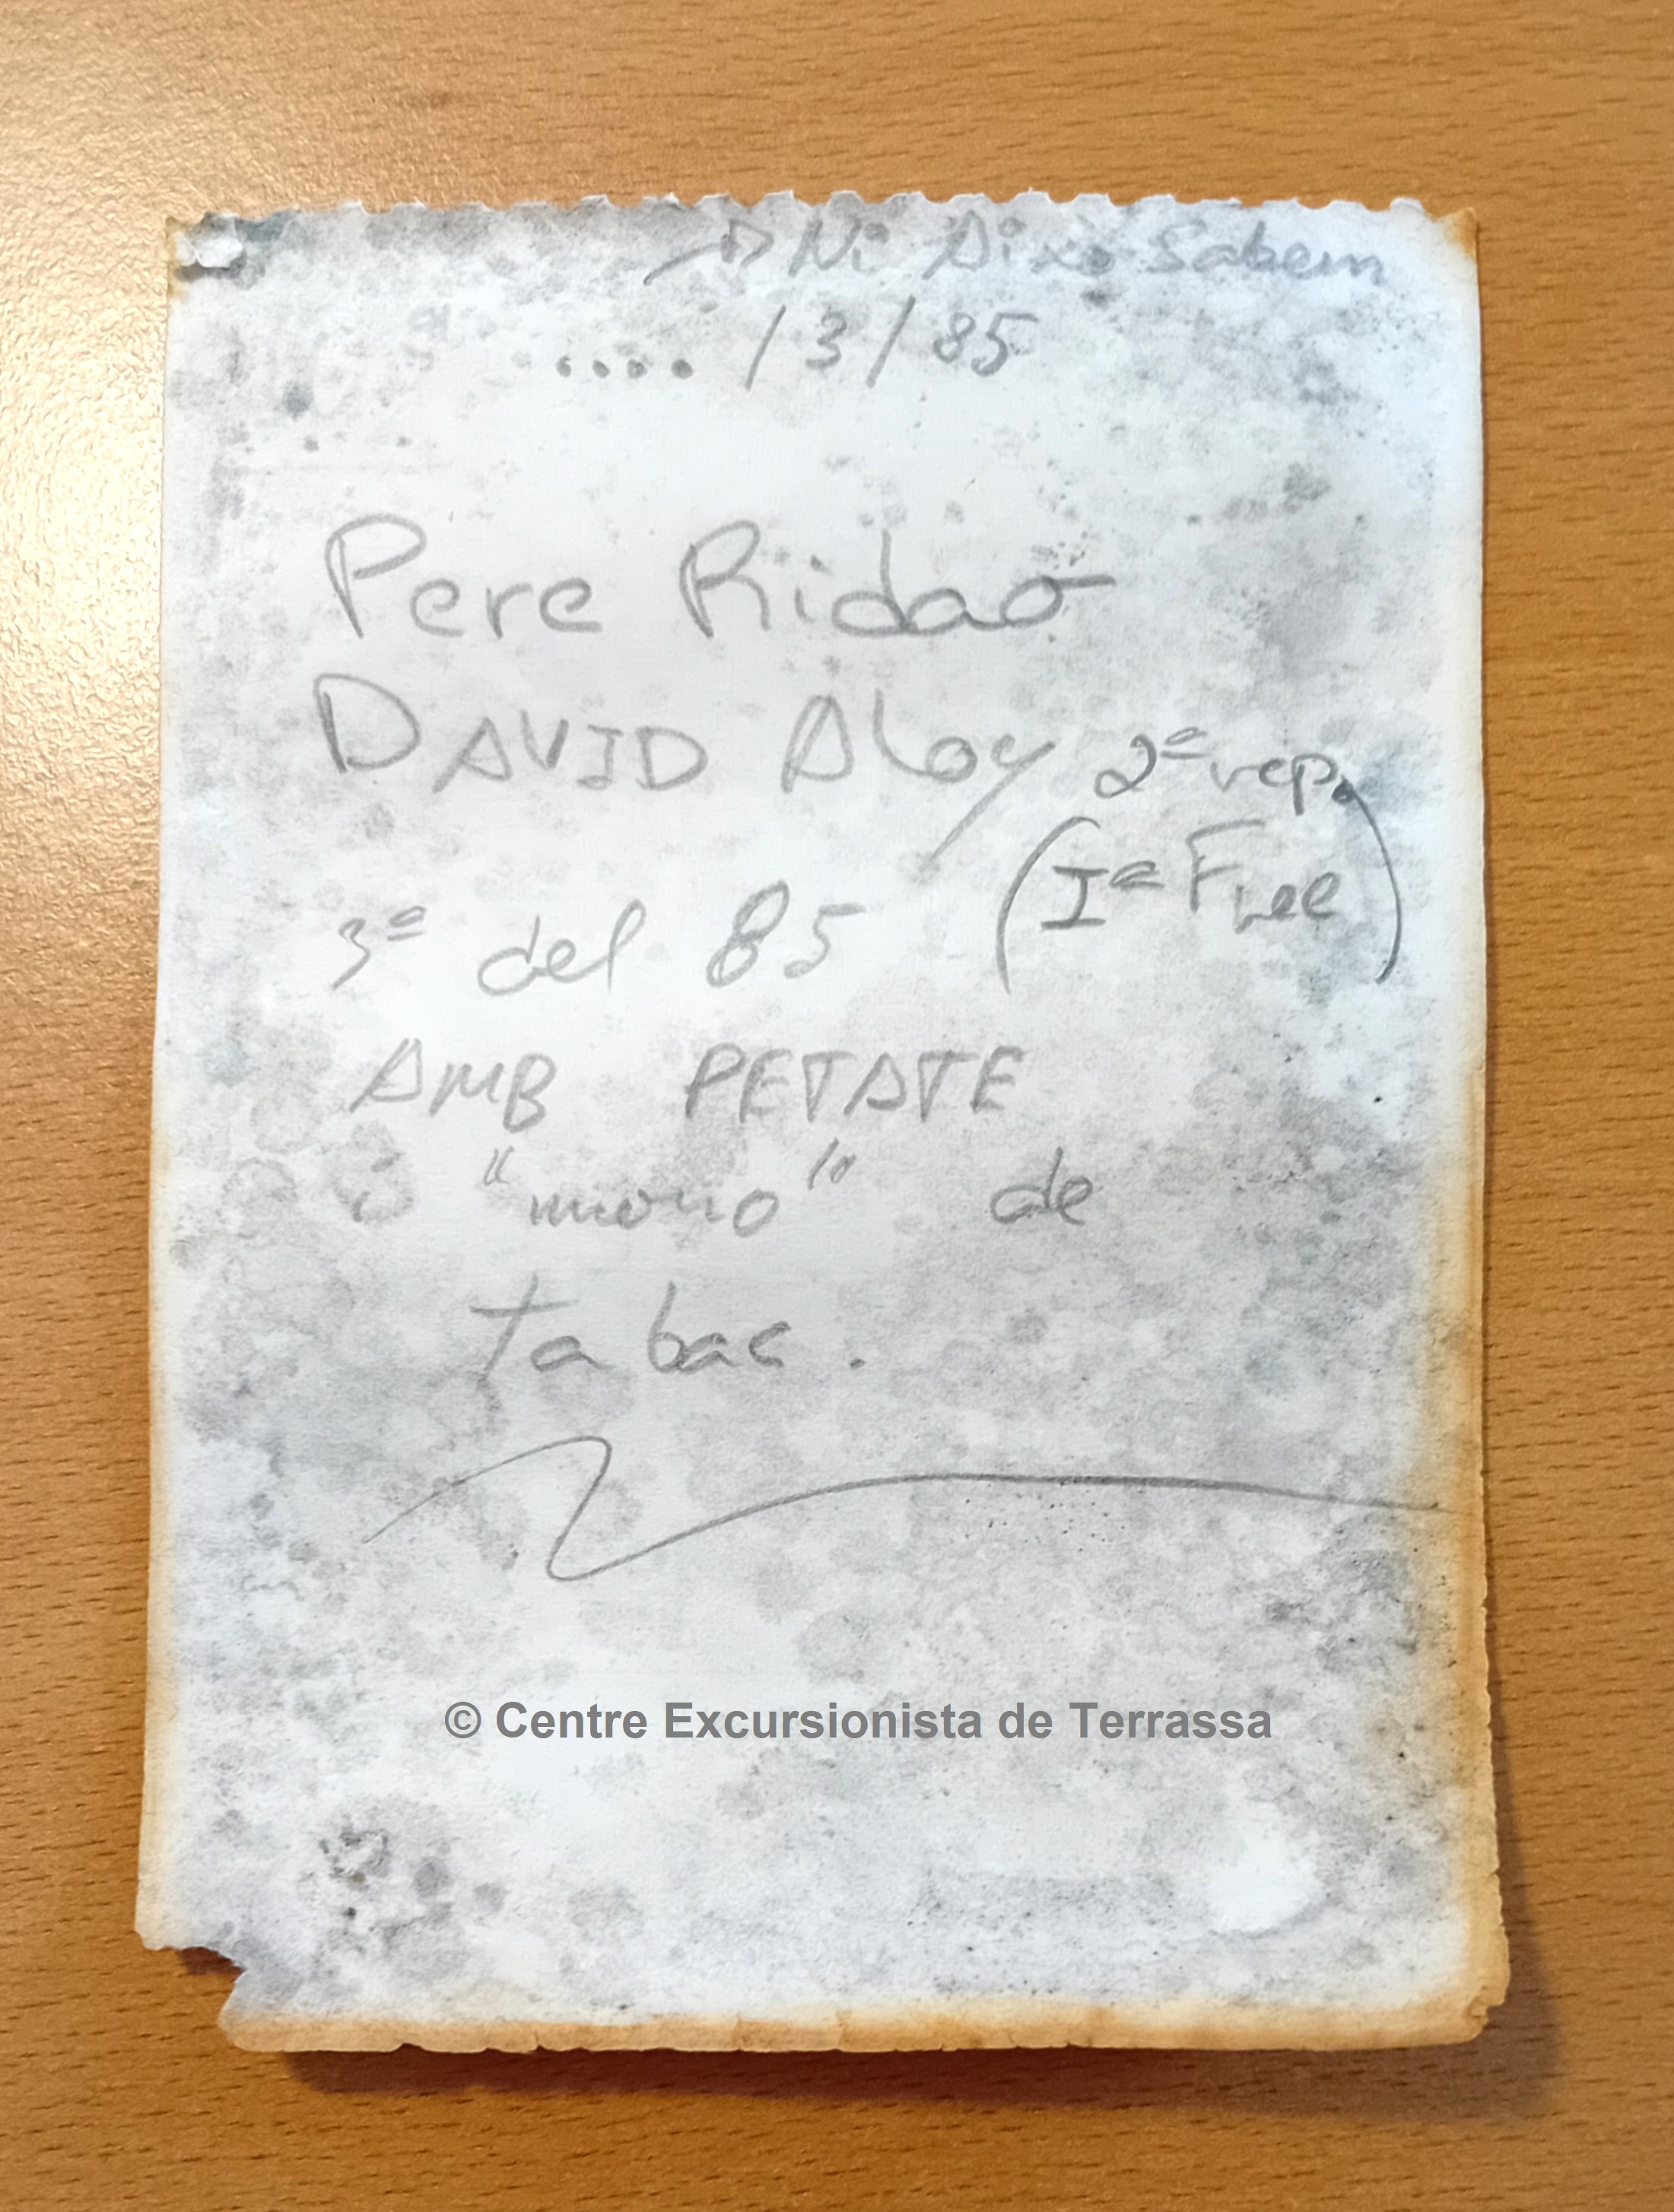 → Ni Això Sabem
.... / 3 / 85
Pere Ridao
DAVID Aloy 2ª rep.
(Iª FLee)
3ª del 85
AMB PETATE
i "mono" de
tabac.
© Centre Excursionista de Terrassa